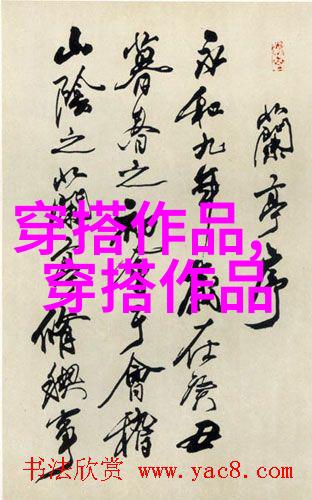 蘭亭序
永和九年歲在癸丑
暮春之初會于會稽
山陰之蘭亭脩禊事
穿搭作品,
穿搭作品
书法欣赏 www.yac8.com